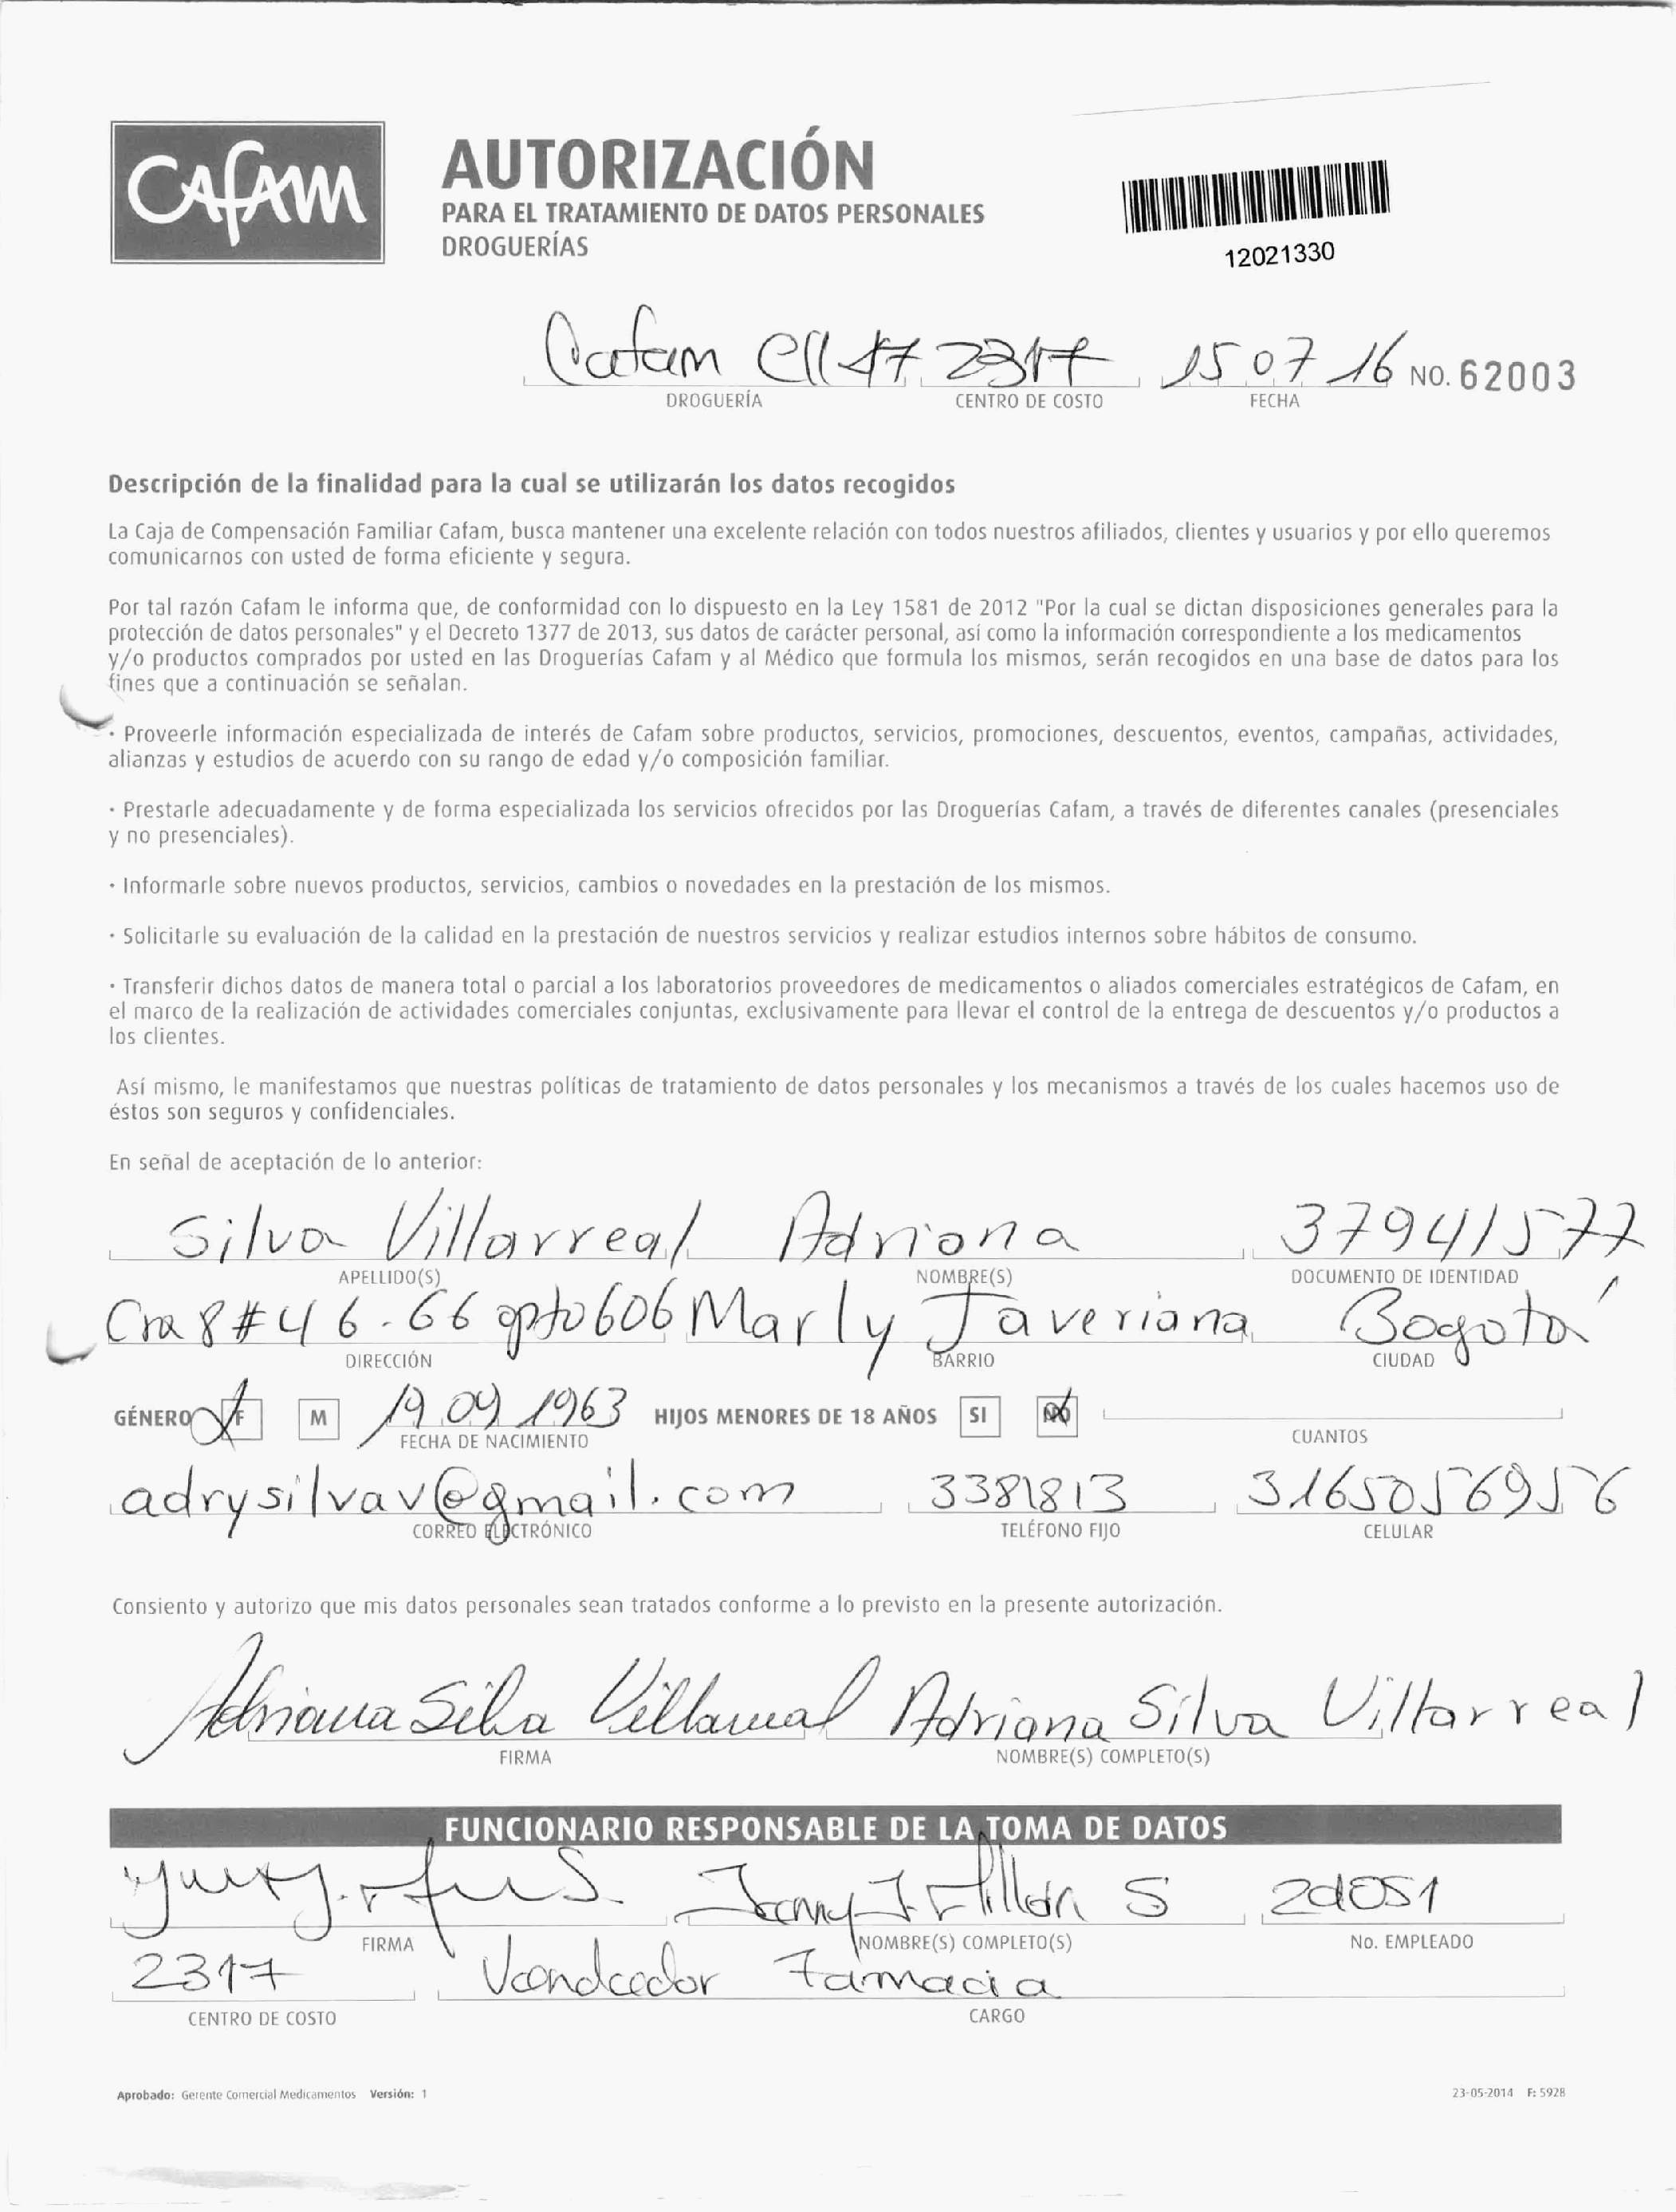 CAFAM
AUTORIZACIÓN
PARA EL TRATAMIENTO DE DATOS PERSONALES
DROGUERÍAS
12021330
Cafam Cll 47 2317 15 07 16 NO. 62003
DROGUERÍA CENTRO DE COSTO FECHA
Descripción de la finalidad para la cual se utilizarán los datos recogidos
La Caja de Compensación Familiar Cafam, busca mantener una excelente relación con todos nuestros afiliados, clientes y usuarios y por ello queremos
comunicarnos con usted de forma eficiente y segura.
Por tal razón Cafam le informa que, de conformidad con lo dispuesto en la Ley 1581 de 2012 "Por la cual se dictan disposiciones generales para la
protección de datos personales" y el Decreto 1377 de 2013, sus datos de carácter personal, así como la información correspondiente a los medicamentos
y/o productos comprados por usted en las Droguerías Cafam y al Médico que formula los mismos, serán recogidos en una base de datos para los
fines que a continuación se señalan.
· Proveerle información especializada de interés de Cafam sobre productos, servicios, promociones, descuentos, eventos, campañas, actividades,
alianzas y estudios de acuerdo con su rango de edad y/o composición familiar.
· Prestarle adecuadamente y de forma especializada los servicios ofrecidos por las Droguerías Cafam, a través de diferentes canales (presenciales
y no presenciales).
· Informarle sobre nuevos productos, servicios, cambios o novedades en la prestación de los mismos.
· Solicitarle su evaluación de la calidad en la prestación de nuestros servicios y realizar estudios internos sobre hábitos de consumo.
· Transferir dichos datos de manera total o parcial a los laboratorios proveedores de medicamentos o aliados comerciales estratégicos de Cafam, en
el marco de la realización de actividades comerciales conjuntas, exclusivamente para llevar el control de la entrega de descuentos y/o productos a
los clientes.
Así mismo, le manifestamos que nuestras políticas de tratamiento de datos personales y los mecanismos a través de los cuales hacemos uso de
éstos son seguros y confidenciales.
En señal de aceptación de lo anterior:
Silva Villarreal Adriana 37941577
APELLIDO(S) NOMBRE(S) DOCUMENTO DE IDENTIDAD
Cra 8 # 46-66 apto 606 Marly Javeriana Bogotá
DIRECCIÓN BARRIO CIUDAD
GÉNERO F M 19 09 1963 HIJOS MENORES DE 18 AÑOS SI NO
FECHA DE NACIMIENTO CUANTOS
adrysilvav@gmail.com 3381813 3165056956
CORREO ELECTRÓNICO TELÉFONO FIJO CELULAR
Consiento y autorizo que mis datos personales sean tratados conforme a lo previsto en la presente autorización.
Adriana Silva Villarreal Adriana Silva Villarreal
FIRMA NOMBRE(S) COMPLETO(S)
FUNCIONARIO RESPONSABLE DE LA TOMA DE DATOS
S 2d051
FIRMA NOMBRE(S) COMPLETO(S) No. EMPLEADO
2317 Vendedor Farmacia
CENTRO DE COSTO CARGO
Aprobado: Gerente Comercial Medicamentos Versión: 1 23-05-2014 F: 5928